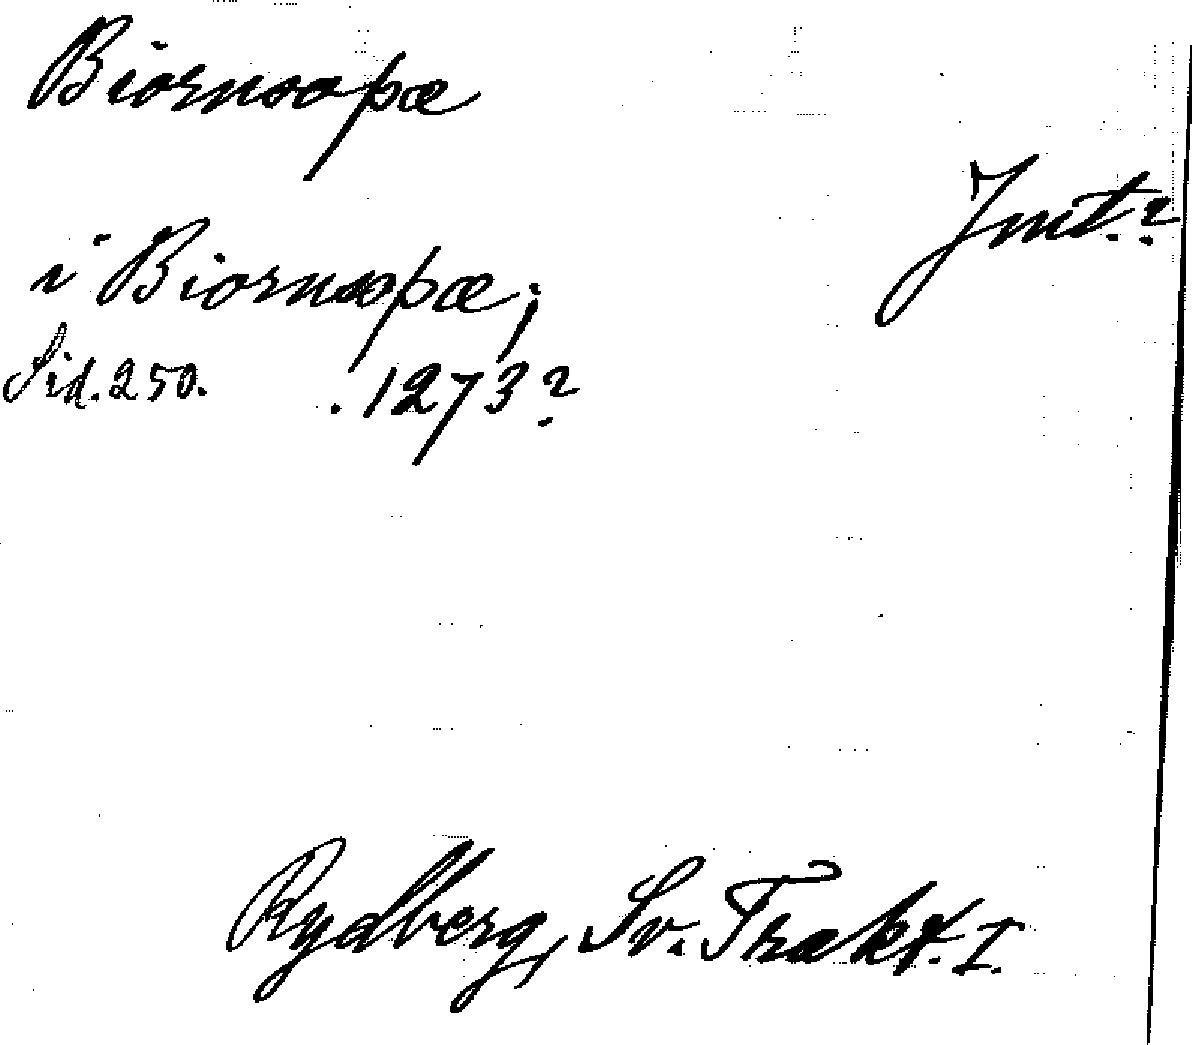 Biornsoþæ
Jmt.?
i Biornsoþæ;
Sid. 250. . 1273?
Rydberg, Sv. Trakt. I.